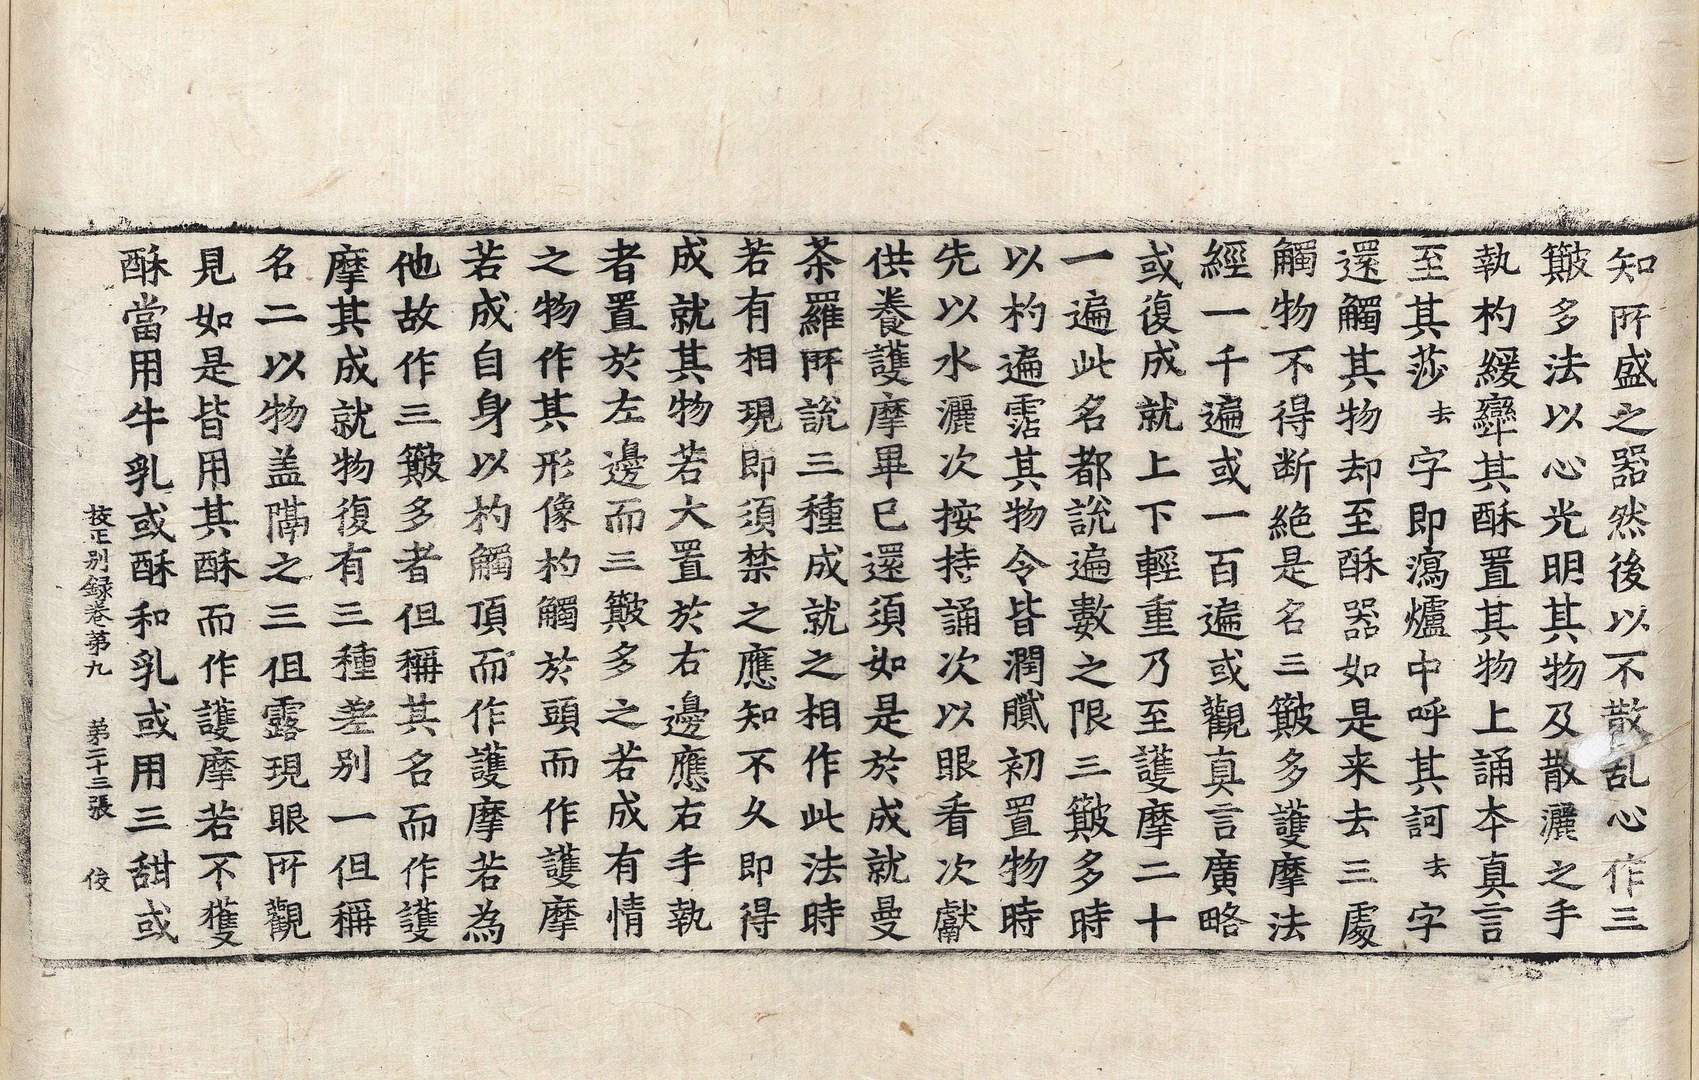 知所盛之器然後以不散乱心作三
簸多法以心光明其物及散灑之手
執杓緩攣其酥置其物上誦本真言
至其莎去字即瀉爐中呼其訶去字
還觸其物却至酥器如是来去三處
觸物不得断絶是名三簸多護摩法
經一千遍或一百遍或觀真言廣略
或復成就上下輕重乃至護摩二十
一遍此名都說遍遍數之限三簸多時
以杓遍霑其物令皆潤膩初置物時
先以水灑次按持誦次以眼看次獻
供養護摩畢已還須如是於成就曼
茶羅所說三種成就之相作此法時
若有相現即須禁之應知不久即得
成就其物若大置於右邊應右手執
者置於左邊而三簸多之若成有情
之物作其形像杓觸於頭而作護摩
若成自身以杓觸頂而作護摩若為
他故作三簸多者但稱其名而作護
摩其成就物復有三種差別一但稱
名二以物盖隔之三但露現眼所觀
見如是皆用其酥而作護摩若不獲
酥當用牛乳或酥和乳或用三甜或
挍正别録卷第九 第二十三張 俊